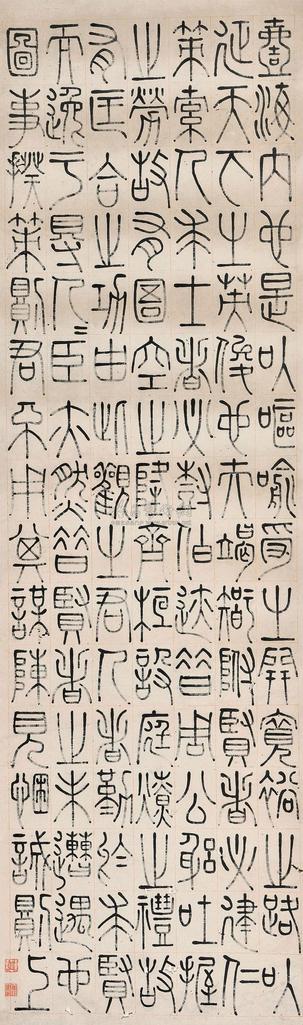 壹海内也是以嘔喻受之開寬裕之路以
延天下之英俊也夫竭智附賢者必建仁
策索人求士者必樹伯迹昔周公躬吐握
之勞故有圄空之隆齊桓設庭燎之禮故
有匡合之功由此觀之君人者勤於求賢
而逸于得人〻臣亦然昔賢者之未遭遇也
圖事揆策則君不用其謀陳見悃誠則上